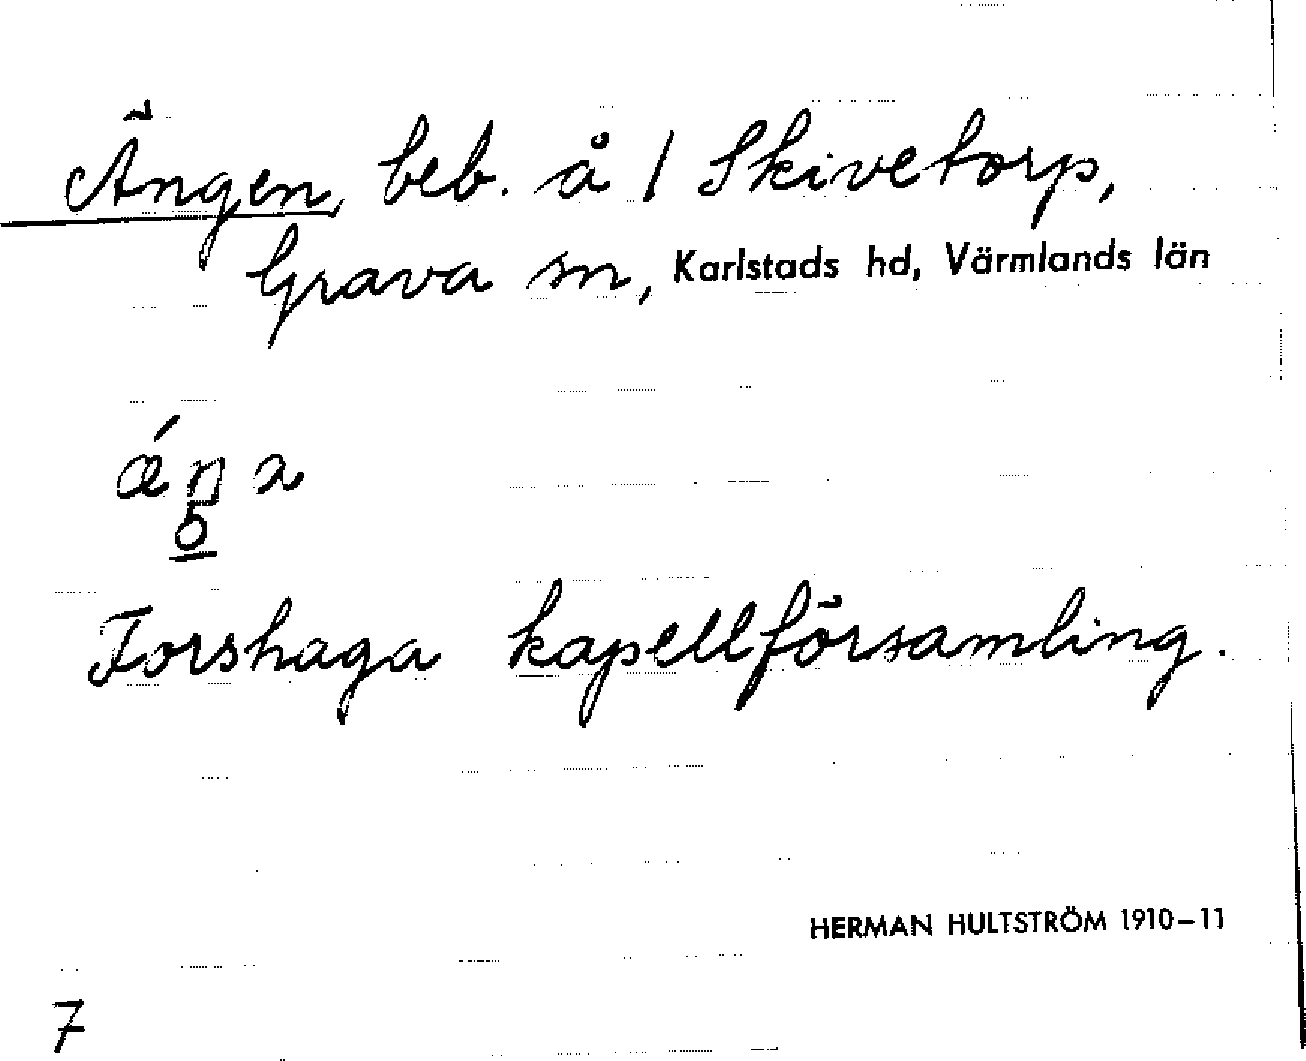 Ängen, beb. å 1 Skivetorp,
Grava sn, Karlstads hd, Värmlands län
ǽŋa
5
Forshaga kapellförsamling.
HERMAN HULTSTRÖM 1910–11
7